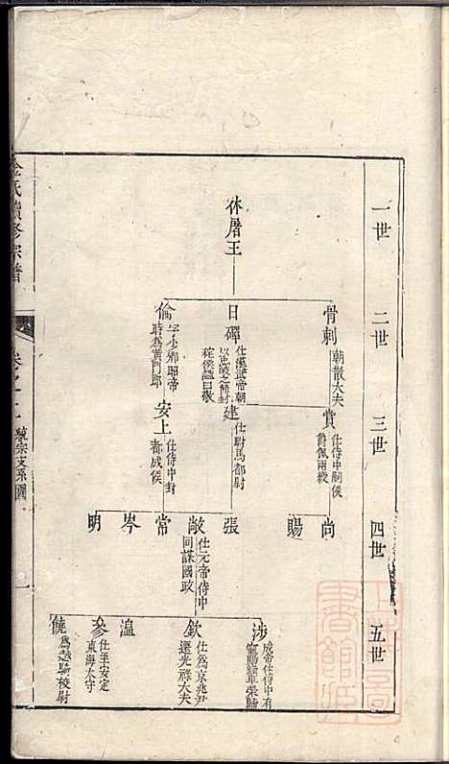 一世
二世
三世
四世
五世
休屠王
骨刺
朝散大夫
日磾
仕漢武帝朝
秺侯諡曰敬
倫
字少卿昭帝
時為黃門郎
賞
仕侍中嗣侯
爵佩兩綬
建
仕尉馬都尉
安上
仕侍中封
都成侯
尚
賜
張
敞
仕元帝侍中
同謀國政
常
岑
明
涉
成帝仕侍中有
欽
仕為京兆尹
遷光祿大夫
溫
參
仕至安定
東海太守
饒
為越騎校尉
氏續修宗譜
統宗支系圖
一